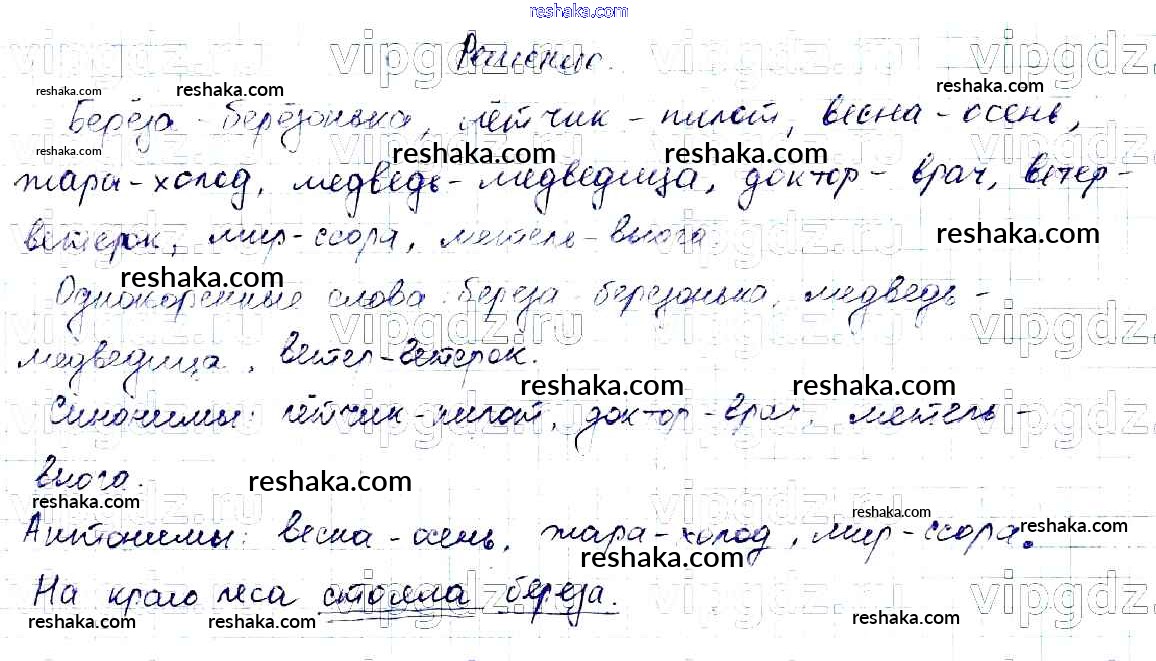 reshaka.com
Решение.
vipgdz.ru vipgdz.ru vipgdz.ru vipgdz.
reshaka.com reshaka.com reshaka.com reshaka.com
Берёза - берёзонька, лётчик - пилот, весна - осень,
reshaka.com reshaka.com reshaka.com
жара - холод, медведь - медведица, доктор - врач, ветер -
ветерок, мир - ссора, метель - вьюга
reshaka.com reshaka.com
Однокоренные слова: береза - березонька, медведь -
vipgdz.ru vipgdz.ru vipgdz.ru vipgdz.
медведица, ветер - ветерок.
reshaka.com reshaka.com
Синонимы: лётчик - пилот, доктор - врач, метель -
вьюга.
reshaka.com reshaka.com
vipgdz.ru vipgdz.ru vipgdz.ru vipgdz.
reshaka.com reshaka.com
Антонимы: весна - осень, жара - холод, мир - ссора.
reshaka.com
На краю леса стояла береза.
vipgdz.ru vipgdz.ru vipgdz.ru vipgdz.
reshaka.com reshaka.com reshaka.com reshaka.com